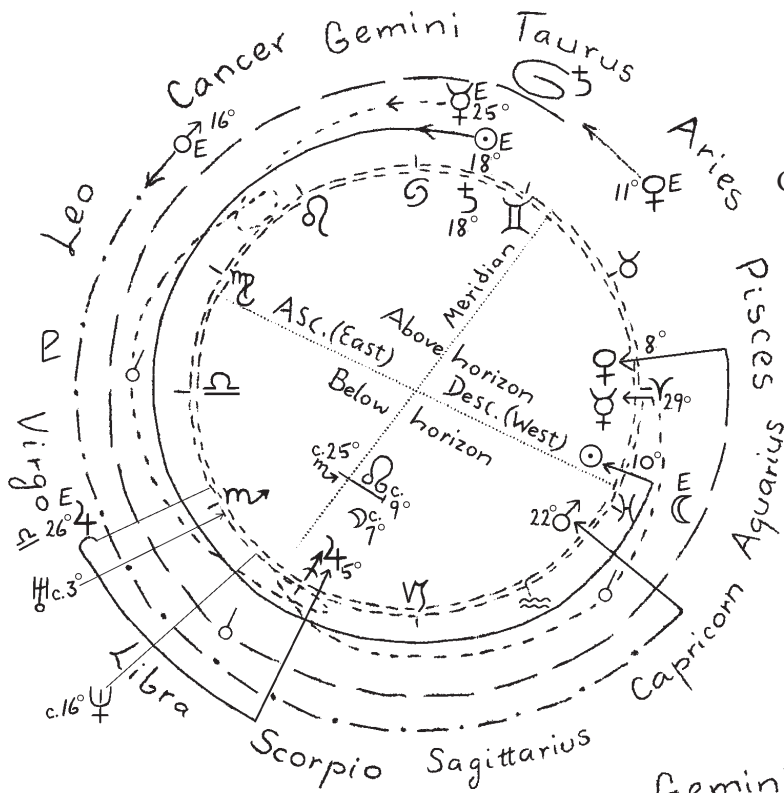 Cancer
Gemini
Taurus
Aries
Pisces
Aquarius
Capricorn
Sagittarius
Scorpio
Libra
Virgo
Leo
♄
♂ 16°
E
☿ E
25°
☉ E
18°
♄
18°
11° ♀ E
♋
♊
♉
♌
♍
♎
♏
♑
♒
♓
♈
Meridian
ASC. (East)
Above horizon
Below horizon
Desc. (West)
♀ 8°
☿ 29°
☉ 0°
E
☾
22° ♂
c. 25°
♏
☊ c.
9°
☽ c.
7°
♃ 5°
♇
♎
E
26° ♃
♅ c. 3°
c. 16° ♆
Gemini